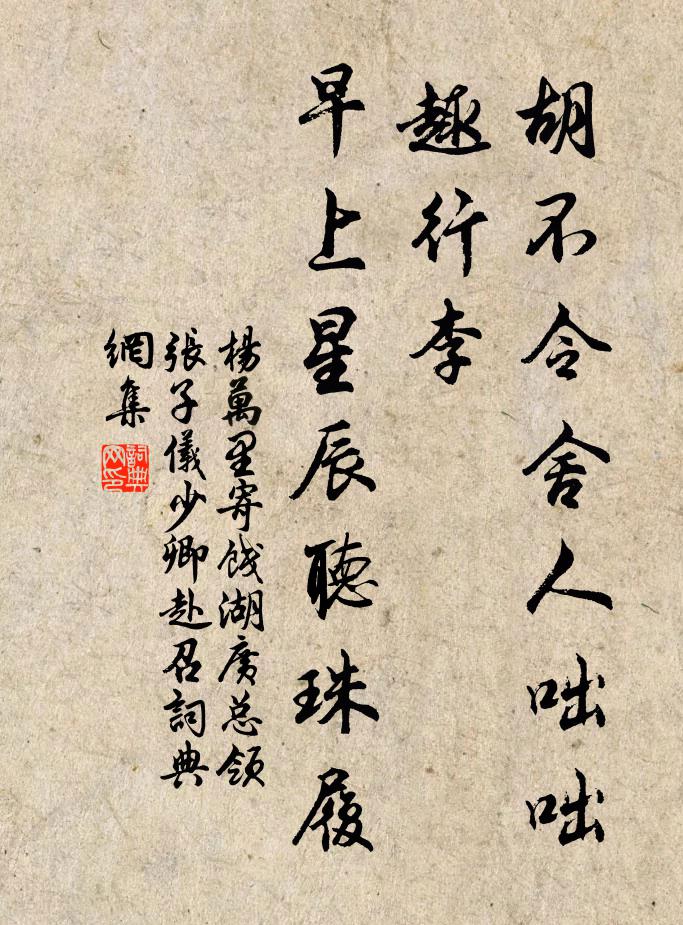 胡不令舍人咄咄
趣行李
早上星辰聽珠履
楊萬里寄餞湖廣总領
張子儀少卿赴召詞典
網集
詞典
网印